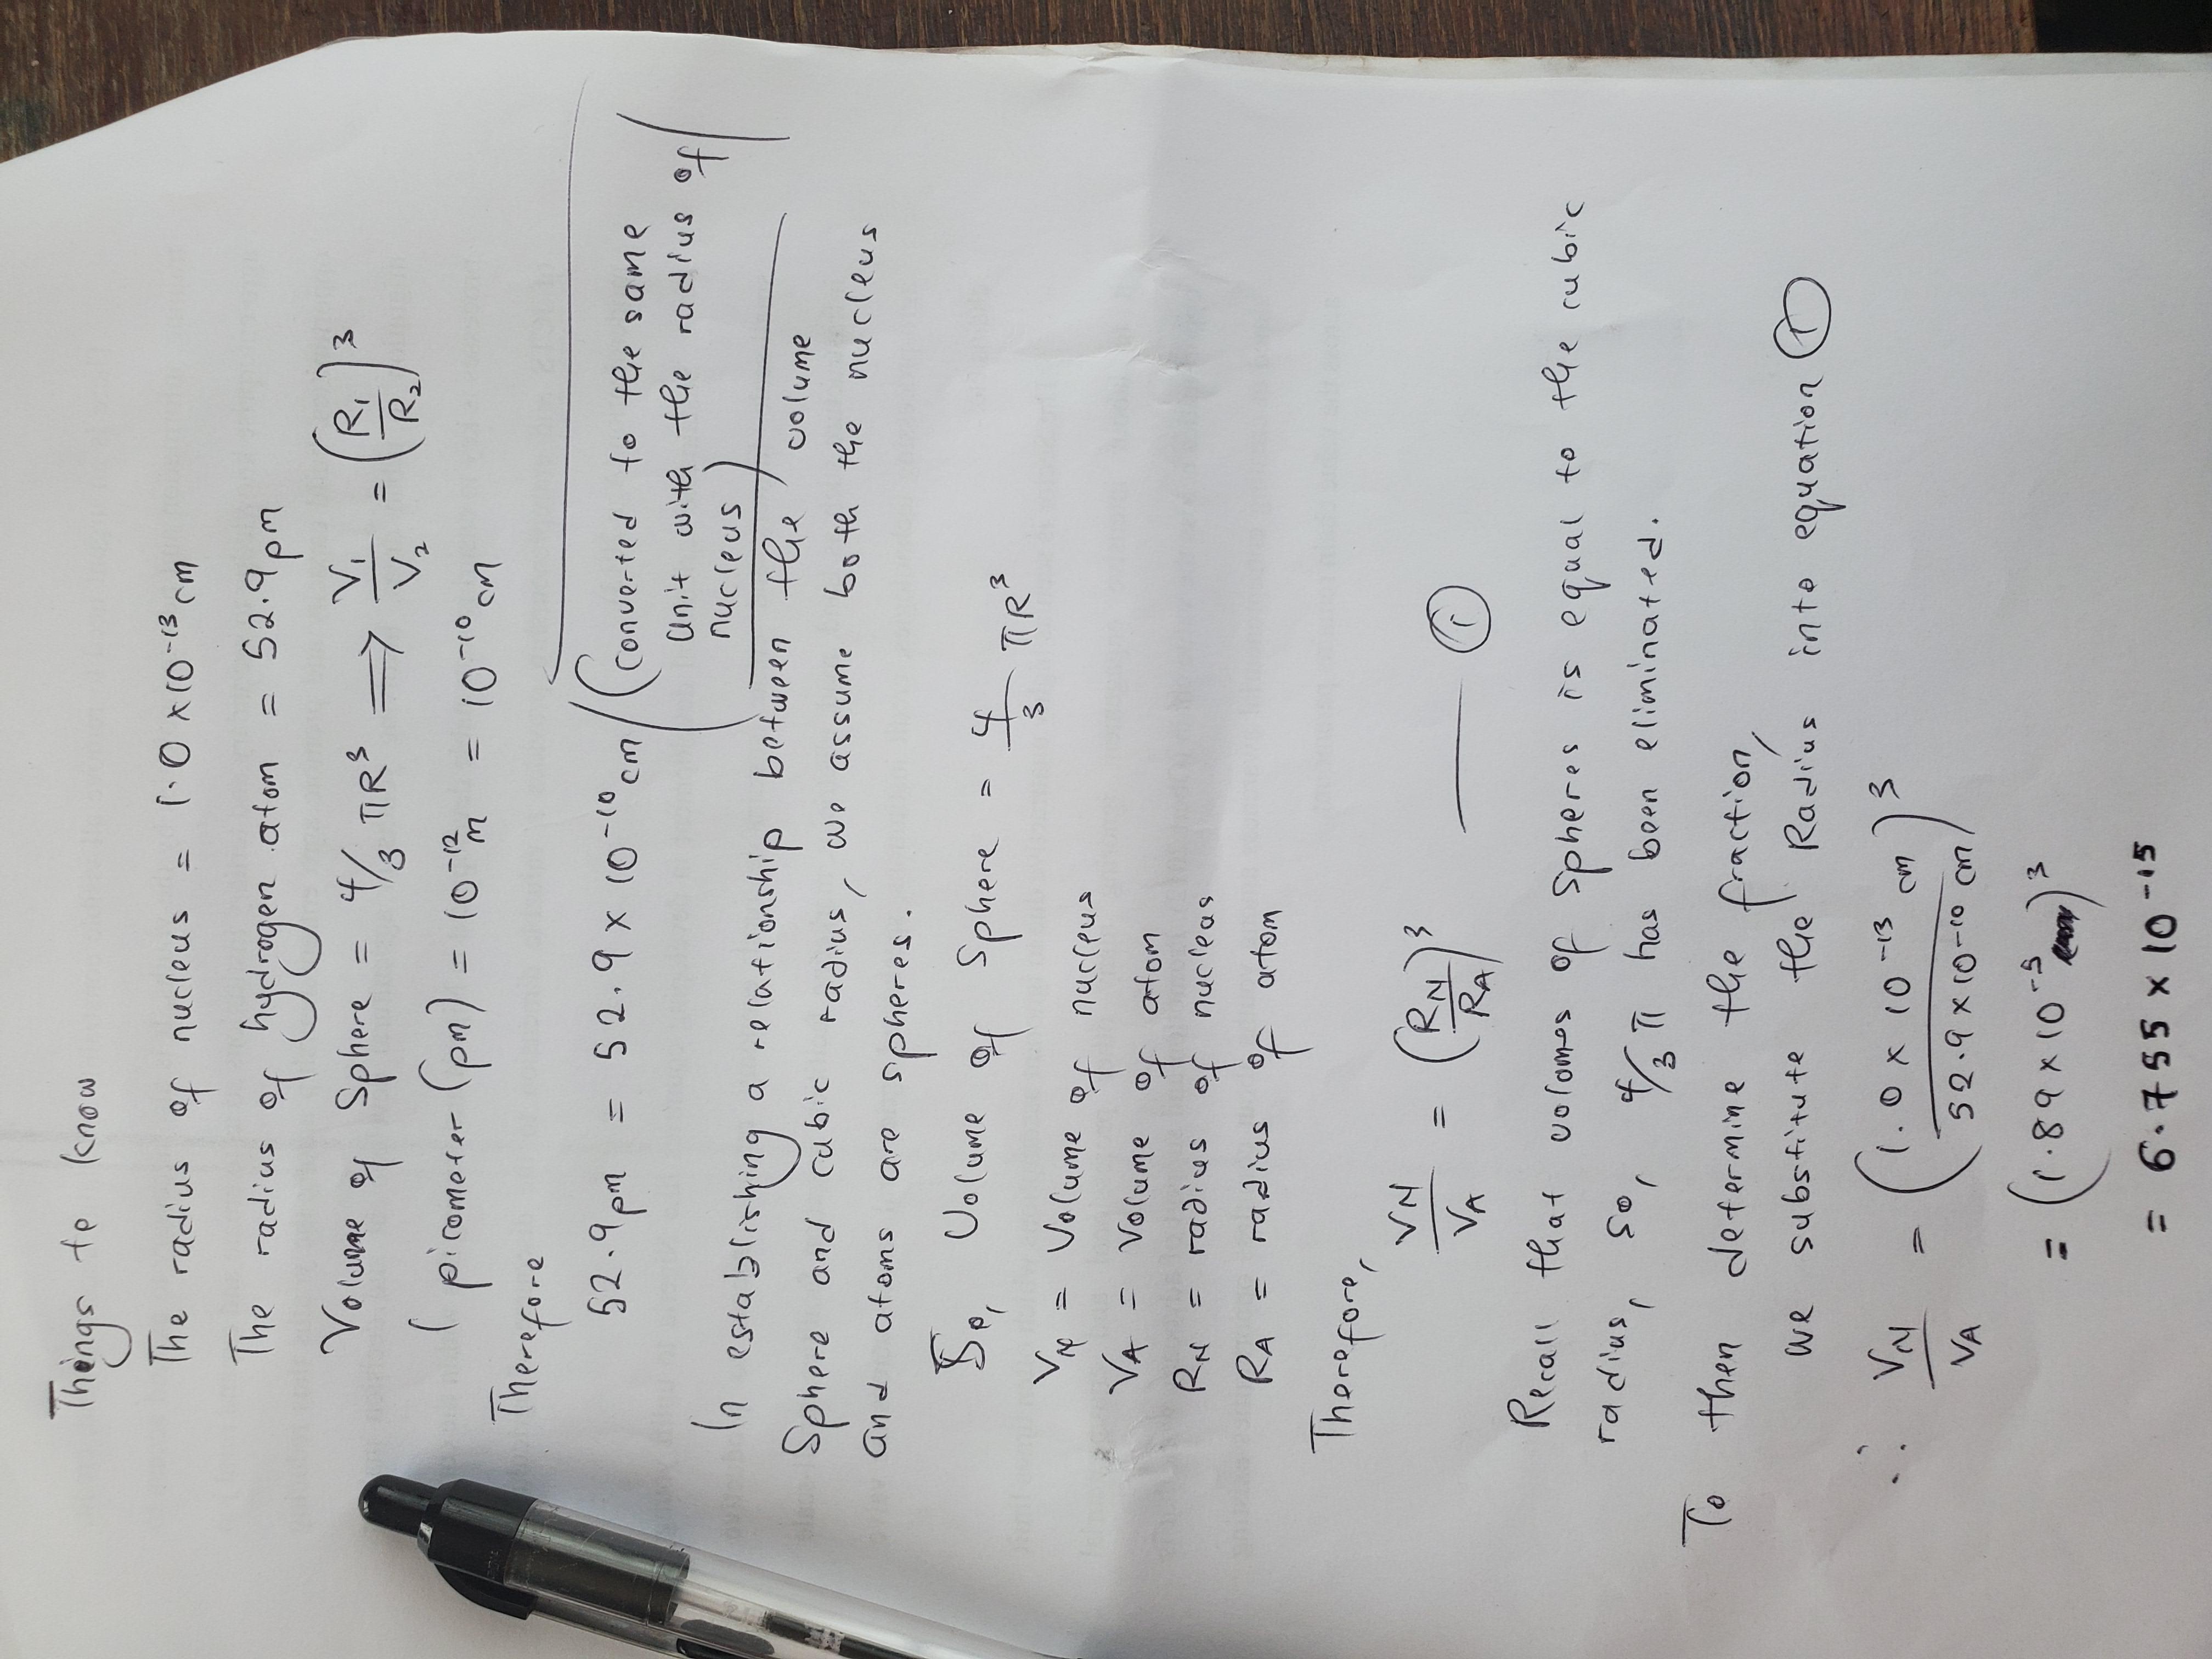 Things to know
The radius of nucleus = 1.0 × 10⁻¹³ cm
The radius of hydrogen atom = 52.9 pm
Volume of Sphere = 4/3 πR³ ⟹ V₁/V₂ = (R₁/R₂)³
1 picometer (pm) = 10⁻¹² m = 10⁻¹⁰ cm
Therefore
52.9 pm = 52.9 × 10⁻¹⁰ cm ((converted to the same
unit with the radius of
nucleus)
In establishing a relationship between the volume
Sphere and cubic radius, we assume both the nucleus
and atoms are spheres.
So, Volume of Sphere = 4/3 πR³
V_N = Volume of nucleus
V_A = Volume of atom
R_N = radius of nucleus
R_A = radius of atom
Therefore,
V_N/V_A = (R_N/R_A)³ —— ①
Recall that volumes of Spheres is equal to the cubic
radius, so, 4/3 π has been eliminated.
To then determine the fraction,
we substitute the Radius into equation ①
∴ V_N/V_A = (1.0 × 10⁻¹³ cm / 52.9 × 10⁻¹⁰ cm)³
= (1.89 × 10⁻⁵)³
= 6.755 × 10⁻¹⁵